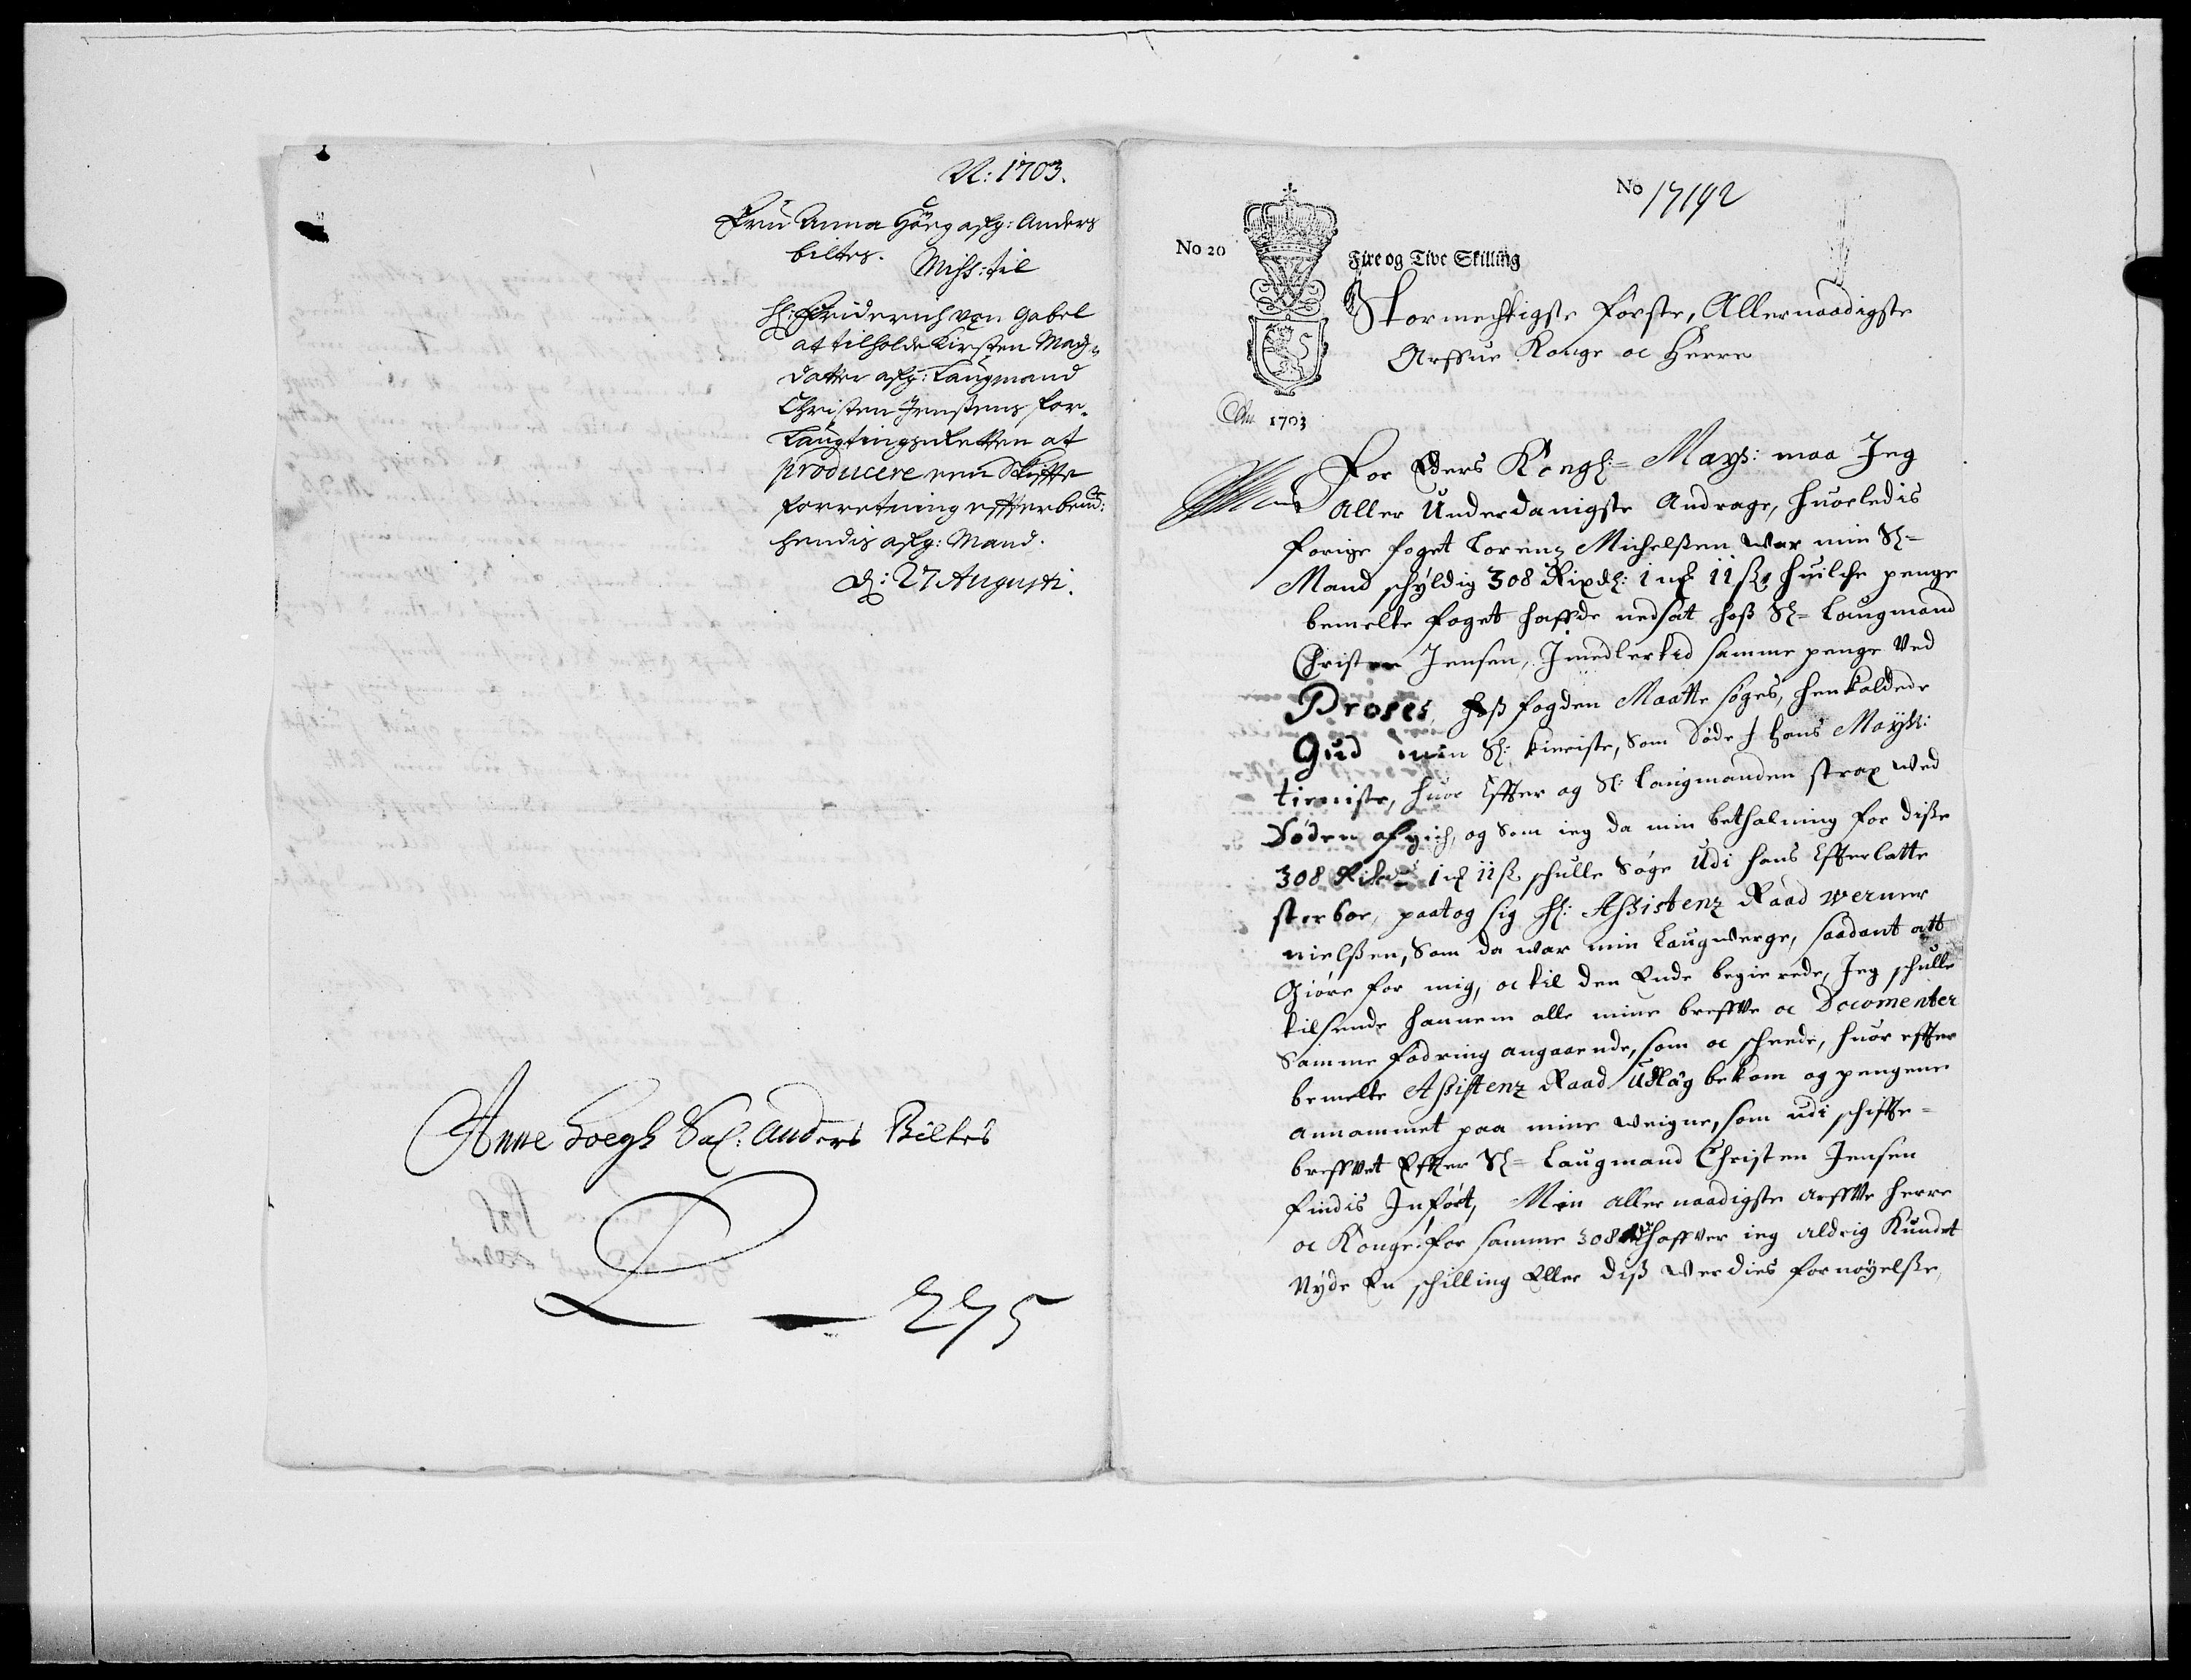 N: 1703.
Fru Anna Höeg afg: Anders
biltes.
Miss: til
H: Friderich von Gabel
at tilholde Kirsten Mag=
datter afg: Laugmand
Christen Jensens for
Laugtingsretten at
producere een Skiffte
forretning effter bem:te
hendis afg: Mand.
d: 27 Augusti.
Anne Hoegh Sal: Anders Biltes
275
No 17192
No 20
Fire og Tive Skilling
Stormechtigste Første, Allernaadigste
Arffue Konge oc Herre
Ao 1703
For Eders Kongl:= Mayt: maa Jeg
Aller Underdanigste Andrage, huorledis
forige foget Lorenz Michelßen war min Sl=
Mand schyldig 308 Rixdl: 1 mk 11 ß, huilche penge
bemelte foget haffde nedsat hoß Sl= Laugmand
Christen Jensen, Jmedlertid samme penge Ved
Proses, hoß fogden Maatte søges, henkaldede
Gud min Sl: kieriste, Som døde J Hans Mayst:
tieniste, huor Effter og Sl: Laugmanden strax wed
Døden afgich, og Som ieg da min bethalning for diße
308 Rixdr 1 mk 11 ß schulle Søge Udi hans Effterlatte
sterboe, paatog sig H: Aßistenz Raad werner
nielßen, Som da war min Laugwerge, saadant att
Giøre for mig, oc til den Ende begierede, Jeg schulle
tilsende hannem alle mine breffve oc Documenter
Samme fodring angaaende, som oc scheede, huor effter
bemelte Aßistenz Raad Udlåg bekom og pengene
annammet paa mine weigne, som udi schiffte=
breffvet Effter Sl= Laugmand Christen Jensen
findis Jnført, Min allernaadigste arffve herre
oc Konge. for samme 308 Rdr haffver ieg aldrig Kundet
Nyde En schilling Eller diß werdies fornøyelße,